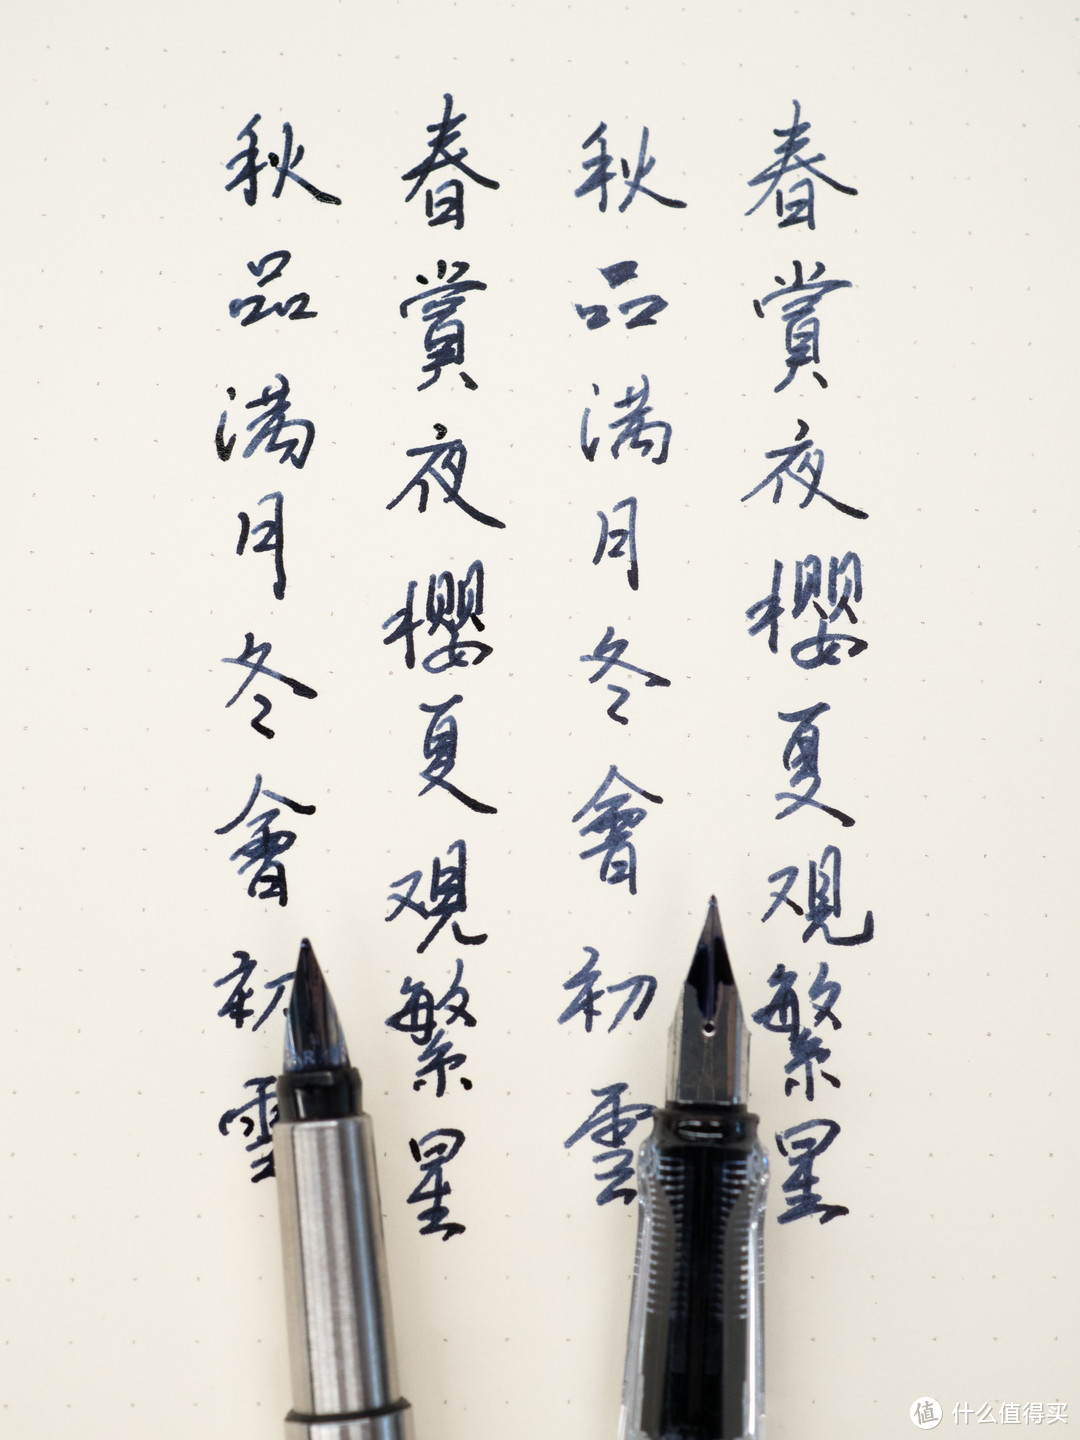 春賞夜櫻夏观繁星
秋品满月冬會初雲
春賞夜櫻夏观繁星
秋品满月冬會初雪
值 什么值得买